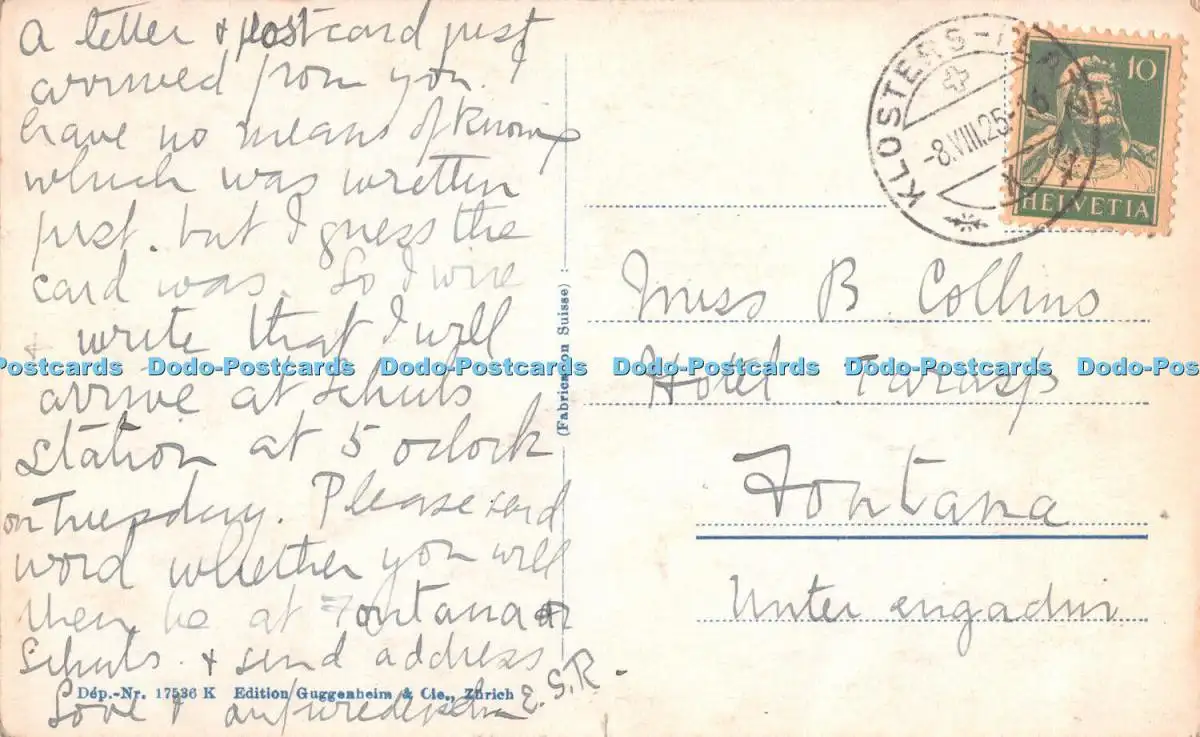 A letter & postcard just
arrived from you. I
have no means of knowing
which was written
first. but I guess the
card was. So I wire
& write that I will
arrive at Schuls
station at 5 oclock
on Tuesday. Please send
word whether you will
then be at Fontana or
Schuls. & send address
Love & aufwiedersehn E.S.R.
(Fabrication Suisse)
Dép.-Nr. 17536 K Edition Guggenheim & Cie., Zürich
KLOSTERS
-8.VIII.25
10
HELVETIA
Miss B Collins
Hotel Tarasp
Fontana
Unter engadin
Postcards Dodo-Postcards Dodo-Postcards Dodo-Postcards Dodo-Postcards Dodo-Pos